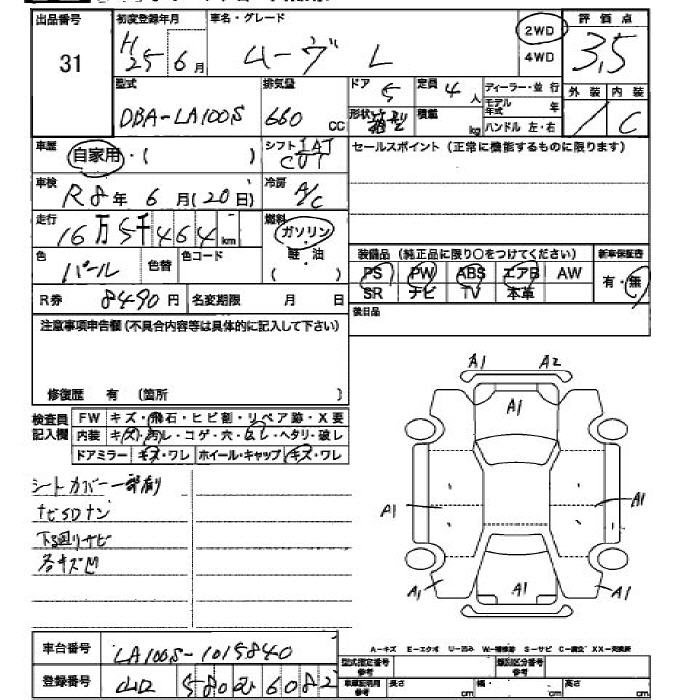 出品番号 初度登録年月 車名・グレード 評価点
31 H25年6月 ムーヴ L 2WD 4WD 3.5
型式 排気量 ドア 5 定員 4人 ディーラー・並行 外装 内装
DBA-LA100S 660cc 形状 箱型 積載 kg モデル年式 年 ハンドル 左・右 / C
車歴 自家用・( ) シフト IAT CVT セールスポイント(正常に機能するものに限ります)
車検 R8年 6月(20日) 冷房 A/C
走行 16万5千464km 燃料 ガソリン・軽油( )
色 パール 色替 色コード 装備品(純正品に限り○をつけてください) 新車保証書
PS PW ABS エアB AW 有・無
R券 8490円 名変期限 月 日 SR ナビ TV 本革
注意事項申告欄(不具合内容等は具体的に記入して下さい) 後日品
修復歴 有 〔箇所 〕
検査員記入欄 FW キズ・飛石・ヒビ割・リペア跡・X要
内装 キズ・汚レ・コゲ・穴・ヘタリ・破レ
ドアミラー キズ・ワレ ホイール・キャップ キズ・ワレ
A1 A2
A1
シートカバー一部剤
ナビSDナシ
A1 A1
下廻りサビ
各キズ凹
A1 A1 A1
車台番号 LA100S-1015840
A-キズ E-エクボ U-凹み W-補修跡 S-サビ C-腐食 XX-交換済
型式指定番号 参考 類別区分番号 参考
登録番号 山口 580 む 6082
車庫証明用 参考 長さ cm 幅・ cm 高さ cm